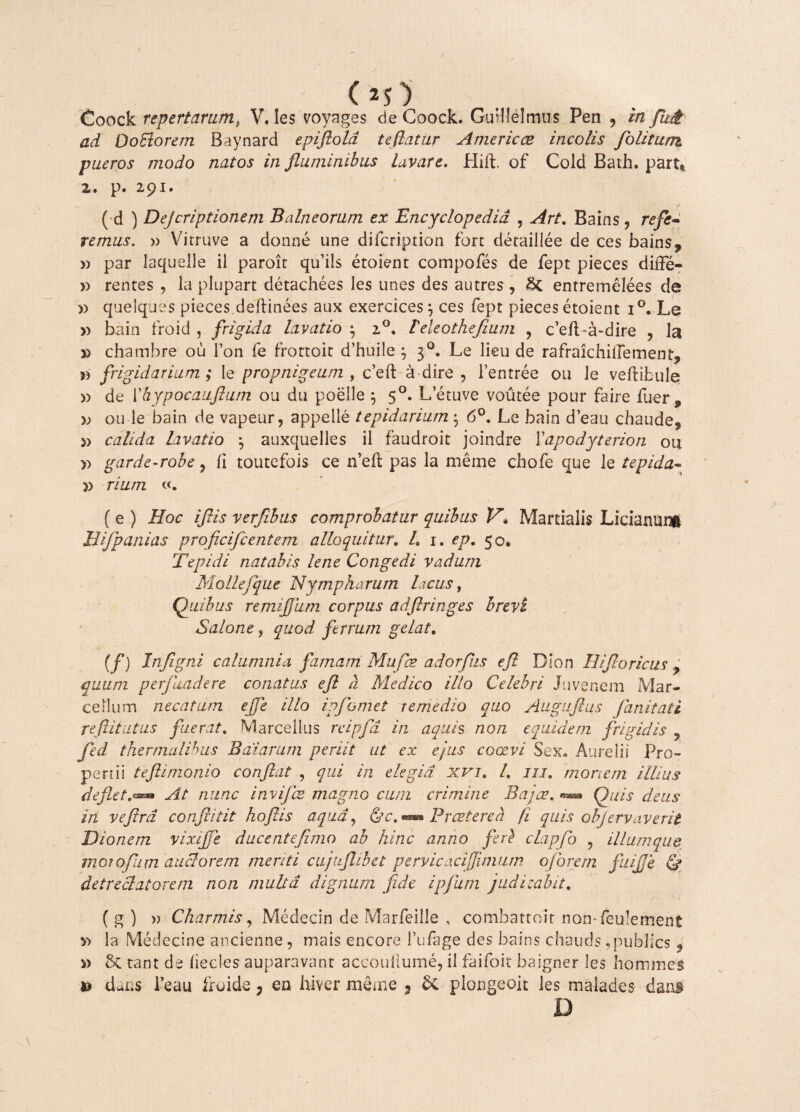 ( 25 )
Coock repertarum, V. les voyages de Coock. Guillelmus Pen , in suâ
ad Doctorem Baynard epiſtolâ teſtatur Americæ incolis ſolitum
pueros modo natos in fluminibus lavare. Hiſt. of Cold Bath. part.
2. p. 291.
( d ) Deſcriptionem Balneorum ex Encyclopediâ , Art. Bains , refe-
remus. » Vitruve a donné une diſcription fort détaillée de ces bains,
» par laquelle il paroît qu'ils étoient compoſés de ſept pieces diffé-
» rentes , la plupart détachées les unes des autres , & entremêlées de
» quelques pieces deſtinées aux exercices ; ces ſept pieces étoient 1°. Le
» bain froid , frigida lavatio ; 2°. l'eleotheſium , c'eſt-à-dire , la
» chambre où l'on ſe frottoit d'huile ; 3°. Le lieu de rafraîchiſſement,
» frigidarium ; le propnigeum , c'eſt à-dire , l'entrée ou le veſtibule
» de l'hypocauſtum ou du poëlle ; 5°. L'étuve voûtée pour faire ſuer ,
» ou le bain de vapeur, appellé tepidarium ; 6°. Le bain d'eau chaude,
» calida lavatio ; auxquelles il faudroit joindre l'apodyterion ou
» garde-robe , ſi toutefois ce n'eſt pas la même choſe que le tepida-
» rium «.
( e ) Hoc iſtis verſibus comprobatur quibus V. Martialis Licianum
Hiſpanias proficiſcentem alloquitur. l. 1. ep. 50.
Tepidi natabis lene Congedi vadum
Molleſque Nympharum lacus,
Quibus remiſſum corpus adſtringes brevi
Salone, quod ferrum gelat.
(f) Inſigni calumnia famam Muſæ adorſus eſt Dion Hiſtoricus ,
quum perſuadere conatus eſt à Medico illo Celebri Juvenem Mar-
cellum necatum eſſe illo ipſomet remedio quo Auguſtus ſanitati
reſtitutus fuerat. Marcellus reipſâ in aquis non equidem frigidis ,
ſed thermalibus Baïarum periit ut ex ejus coævi Sex. Aurelii Pro-
pertii teſtimonio conſtat , qui in elegiâ XVI. l. III. mortem illius
deflet.— At nunc inviſæ magno cum crimine Bajæ. — Quis deus
in veſtrâ conſtitit hoſtis aquâ, &c. — Prætereà ſi quis obſervaverit
Dionem vixiſſe ducenteſimo ab hinc anno ferè elapſo , illumque
moroſum auctorem meriti cujuſlibet pervicaciſſimum oſorem fuiſſe &
detrectatorem non multâ dignum fide ipſum judicabit.
( g ) » Charmis, Médecin de Marſeille , combattoit non-ſeulement
» la Médecine ancienne , mais encore l'uſage des bains chauds , publics ,
» & tant de ſiecles auparavant accouſtumé, il faiſoit baigner les hommes
» dans l'eau froide , en hiver même , & plongeoit les malades dans
D